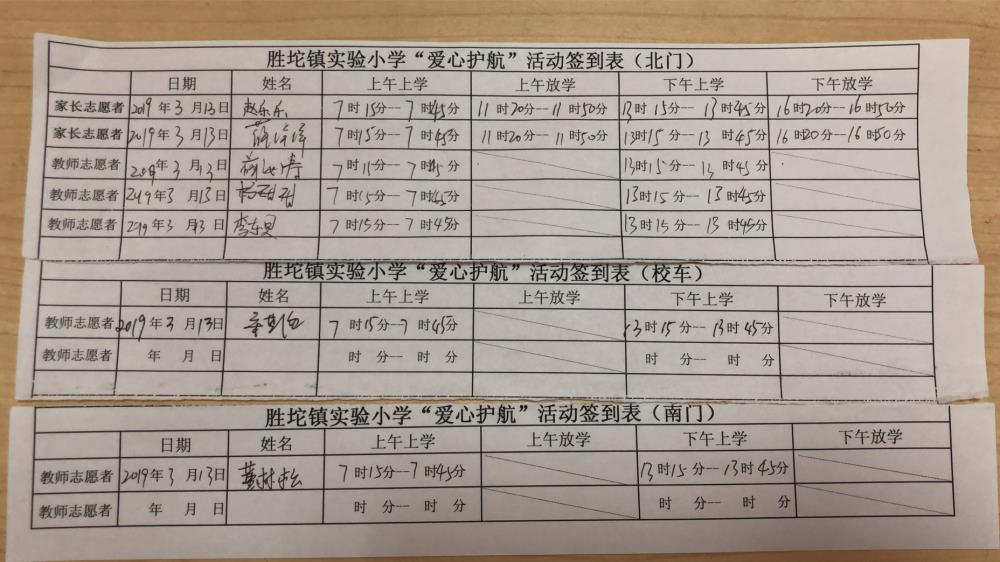 胜坨镇实验小学“爱心护航”活动签到表（北门）
日期 姓名 上午上学 上午放学 下午上学 下午放学
家长志愿者 2019年3月13日 赵乐乐 7时15分--7时45分 11时20分--11时50分 13时15分--13时45分 16时20分--16时50分
家长志愿者 2019年3月13日 7时15分--7时45分 11时20分--11时50分 13时15分--13时45分 16时20分--16时50分
教师志愿者 2019年3月13日 7时15分--7时45分 13时15分--13时45分
教师志愿者 2019年3月13日 7时15分--7时45分 13时15分--13时45分
教师志愿者 2019年3月13日 7时15分--7时45分 13时15分--13时45分
胜坨镇实验小学“爱心护航”活动签到表（校车）
日期 姓名 上午上学 上午放学 下午上学 下午放学
教师志愿者 2019年3月13日 7时15分--7时45分 13时15分--13时45分
教师志愿者 年月日 时分--时分 时分--时分
胜坨镇实验小学“爱心护航”活动签到表（南门）
日期 姓名 上午上学 上午放学 下午上学 下午放学
教师志愿者 2019年3月13日 7时15分--7时45分 13时15分--13时45分
教师志愿者 年月日 时分--时分 时分--时分